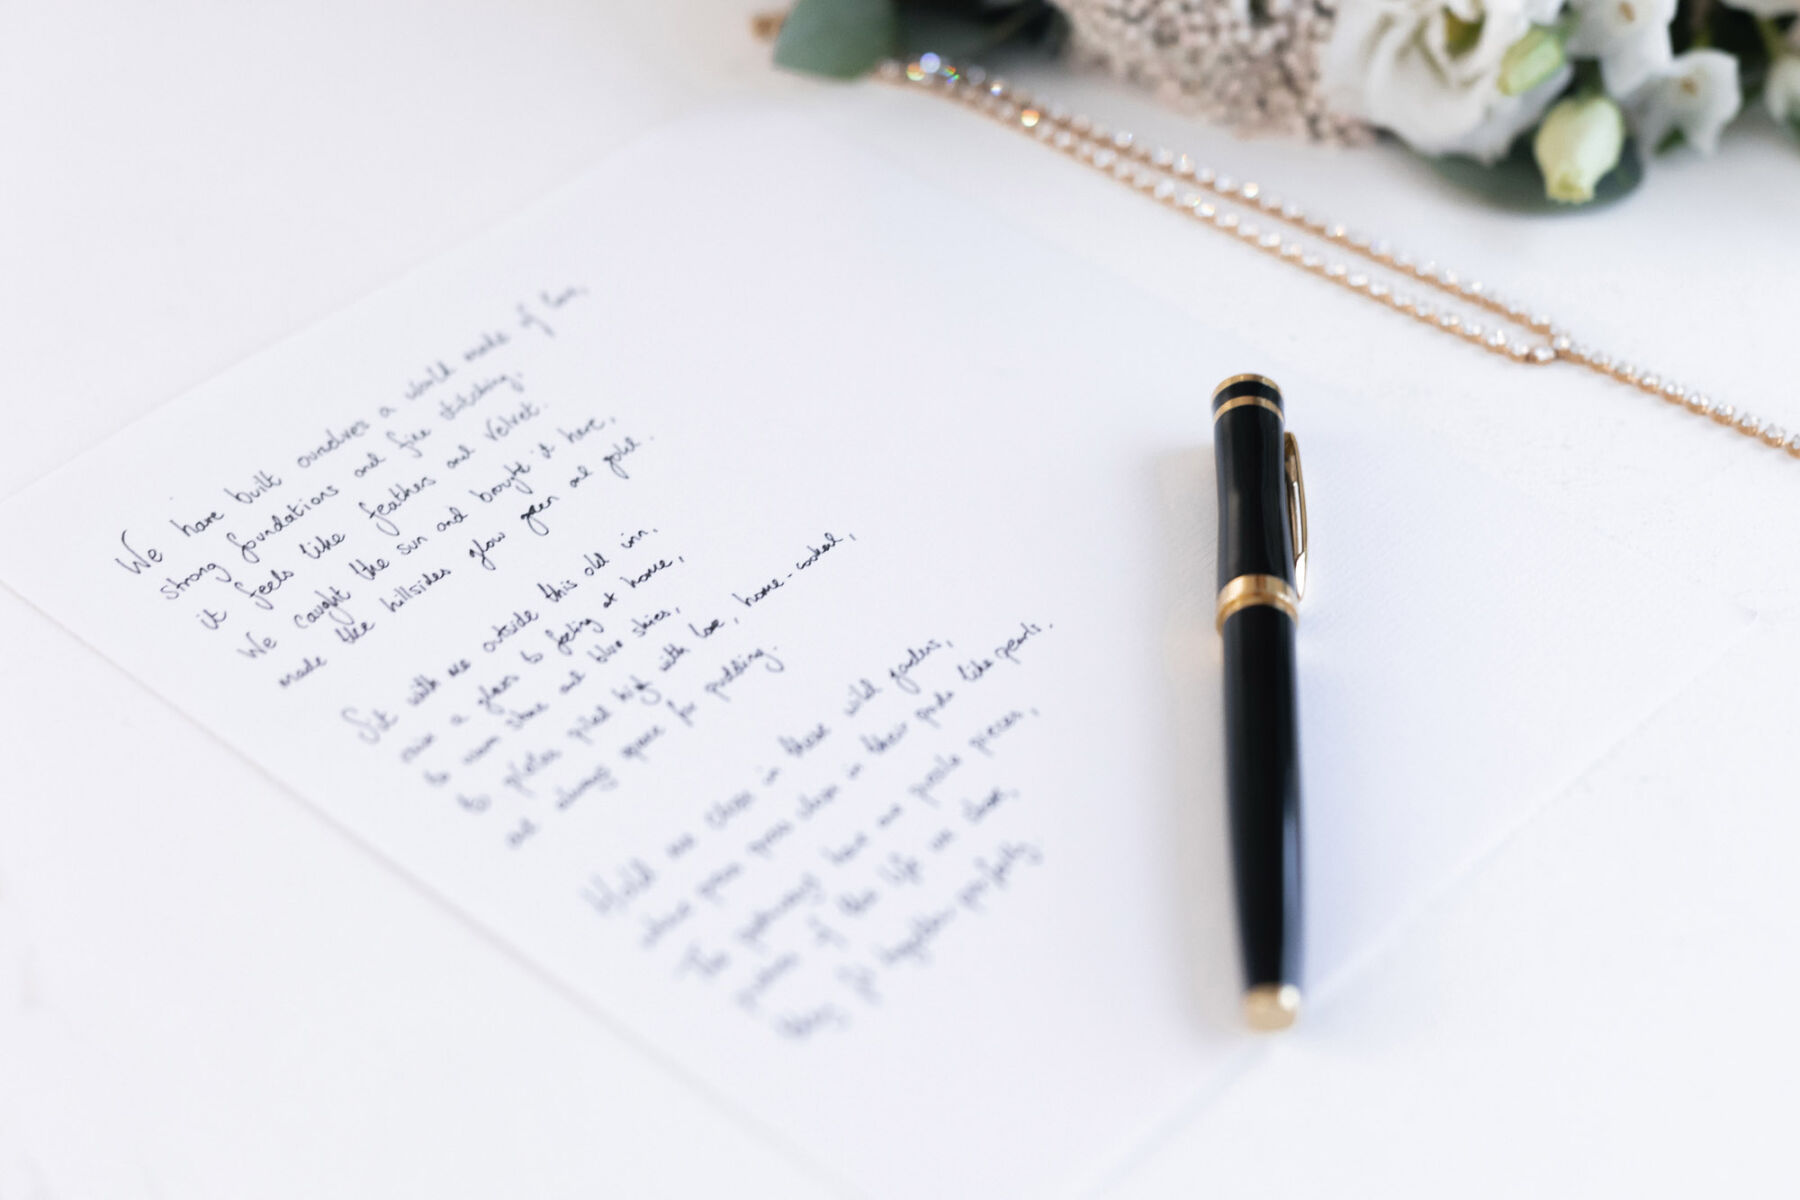 We have built ourselves a world made of love,
strong foundations and fine stitching,
it feels like feathers and velvet.
We caught the sun and brought it here,
made the hillsides glow green and gold.
Sit with me outside this old inn,
raise a glass to feeling at home,
to warm stone and blue skies,
to plates piled high with love, home-cooked,
and always space for pudding.
Hold me close in these wild gardens,
where peas grow close in their pods like pearls.
The gateways have our puzzle pieces,
of the life we
fit together perfectly